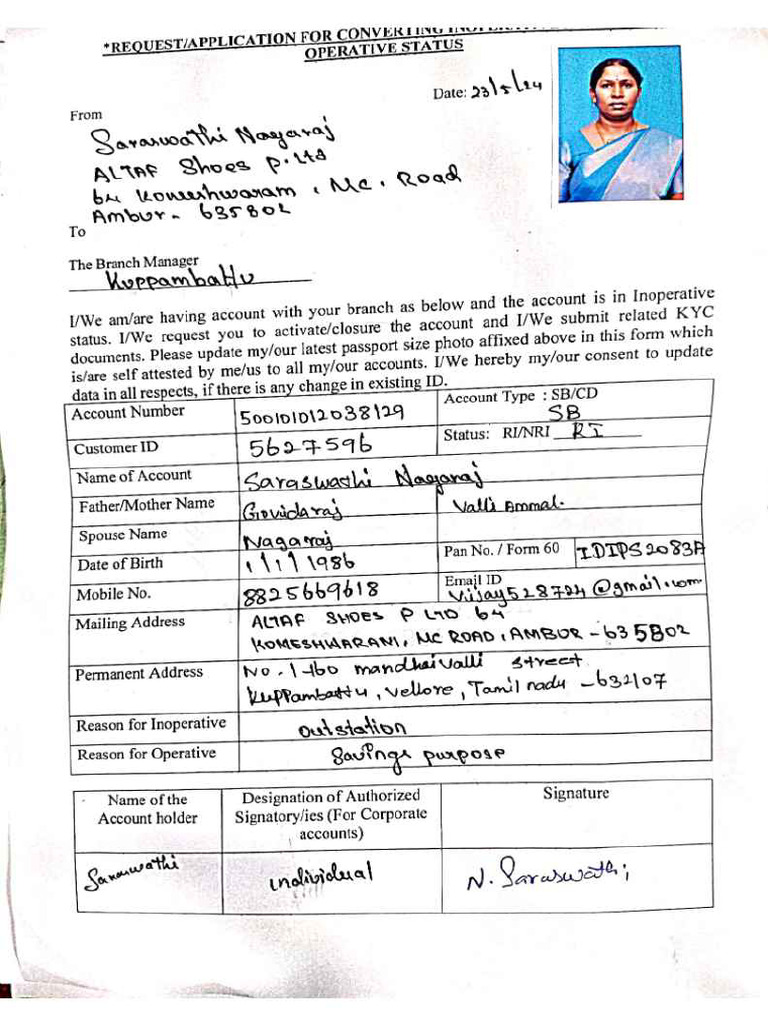 *REQUEST/APPLICATION FOR CONVERTING
OPERATIVE STATUS
Date: 23/5/24
From
Saraswathi Nagaraj
ALTAF Shoes P. Ltd
64 Komeshwaram, Mc. Road
Ambur - 635802
To
The Branch Manager
Kuppambattu
I/We am/are having account with your branch as below and the account is in Inoperative
status. I/We request you to activate/closure the account and I/We submit related KYC
documents. Please update my/our latest passport size photo affixed above in this form which
is/are self attested by me/us to all my/our accounts. I/We hereby my/our consent to update
data in all respects, if there is any change in existing ID.
Account Number 500101012038129 Account Type : SB/CD SB
Customer ID 5627596 Status: RI/NRI RI
Name of Account Saraswathi Nagaraj
Father/Mother Name Govidaraj Valli Ammal.
Spouse Name Nagaraj
Date of Birth 1/1/1986 Pan No. / Form 60 IDIPS2083A
Mobile No. 8825669618 Email ID vijay528724@gmail.com
Mailing Address ALTAF SHOES P LTD 64
KOMESHWARAM, MC ROAD, AMBUR - 635802
Permanent Address No. 1-160 mandhaivalli street
kuppambattu, vellore, Tamil nadu - 632107
Reason for Inoperative outstation
Reason for Operative Savings purpose
Name of the Account holder Designation of Authorized Signatory/ies (For Corporate accounts) Signature
Saraswathi individual N. Saraswathi